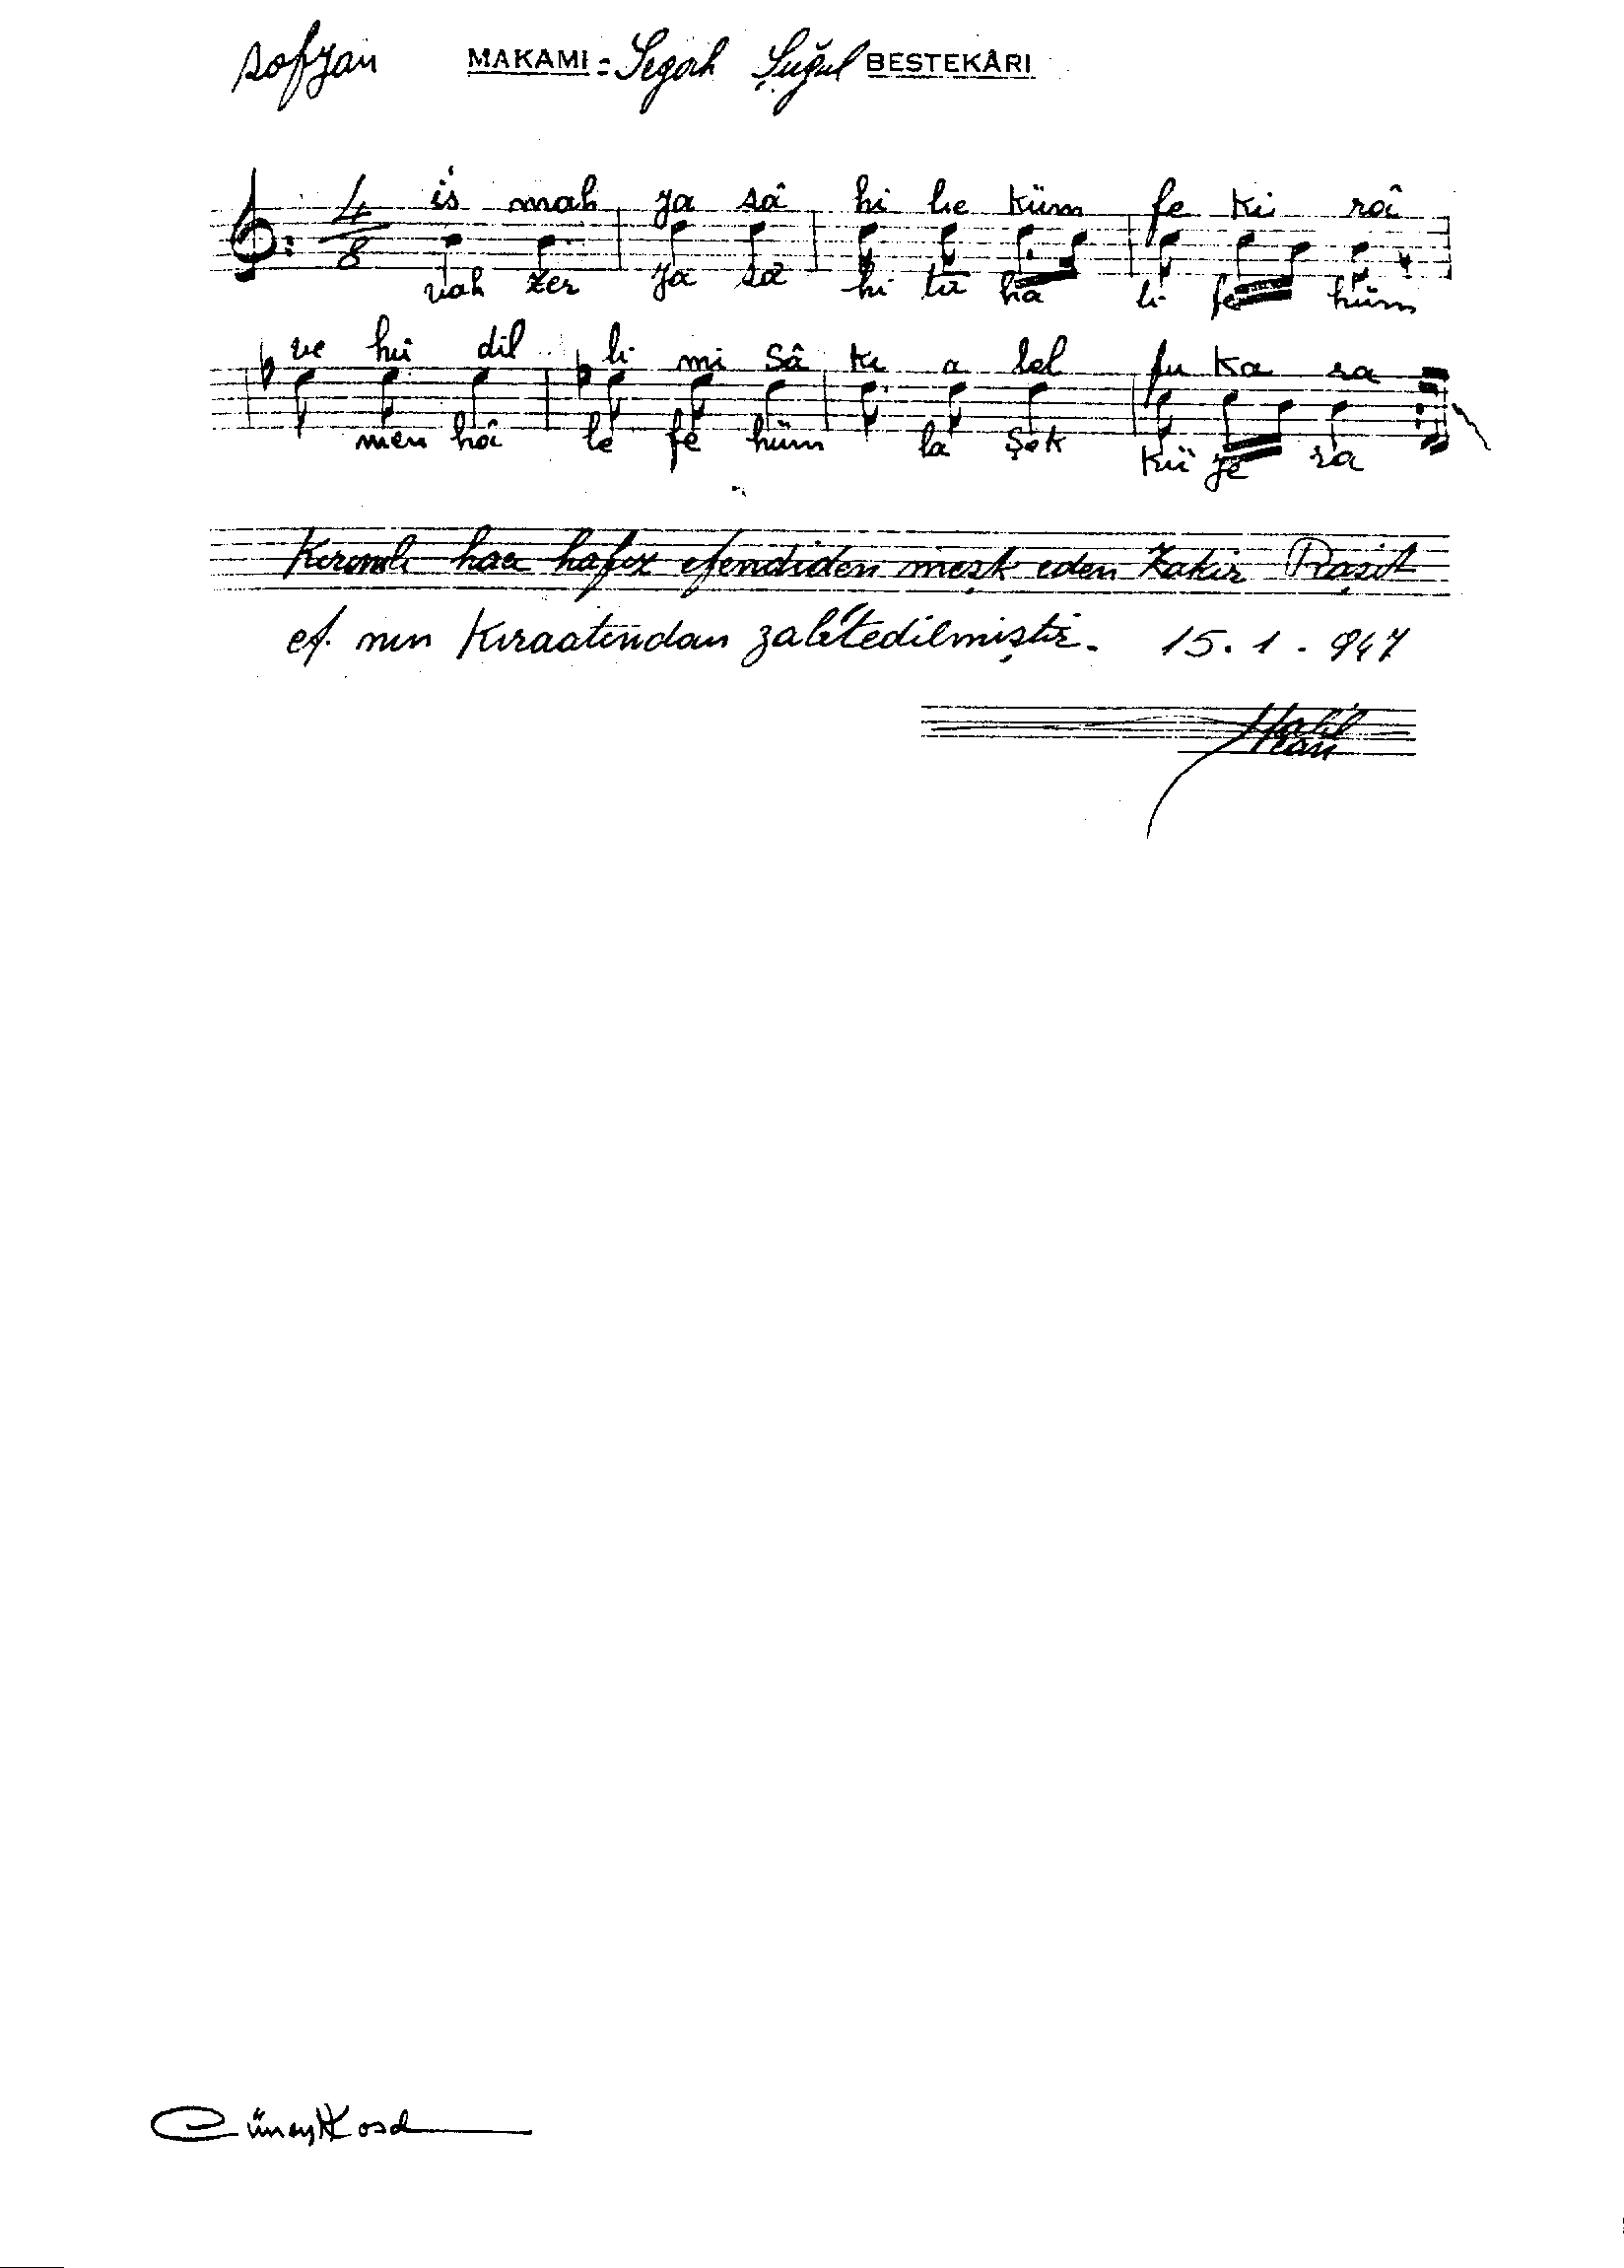 sofyan MAKAMI = Segah Şuğul BESTEKÂRI
4/8 is mah ya sâ hi be küm fe ki râ
vah zer ya sa hi tı ha li fe hüm
ve hü dil li mi sâ kı a lel fu ka ra
men hâ le fe hüm la şek kü ye ra
Kırımlı hacı hafız efendiden meşk eden Zakir Raşit
ef. nın Kıraatından zabıtedilmiştir. 15.1.947
Halil Can
Cüneyt Kosal